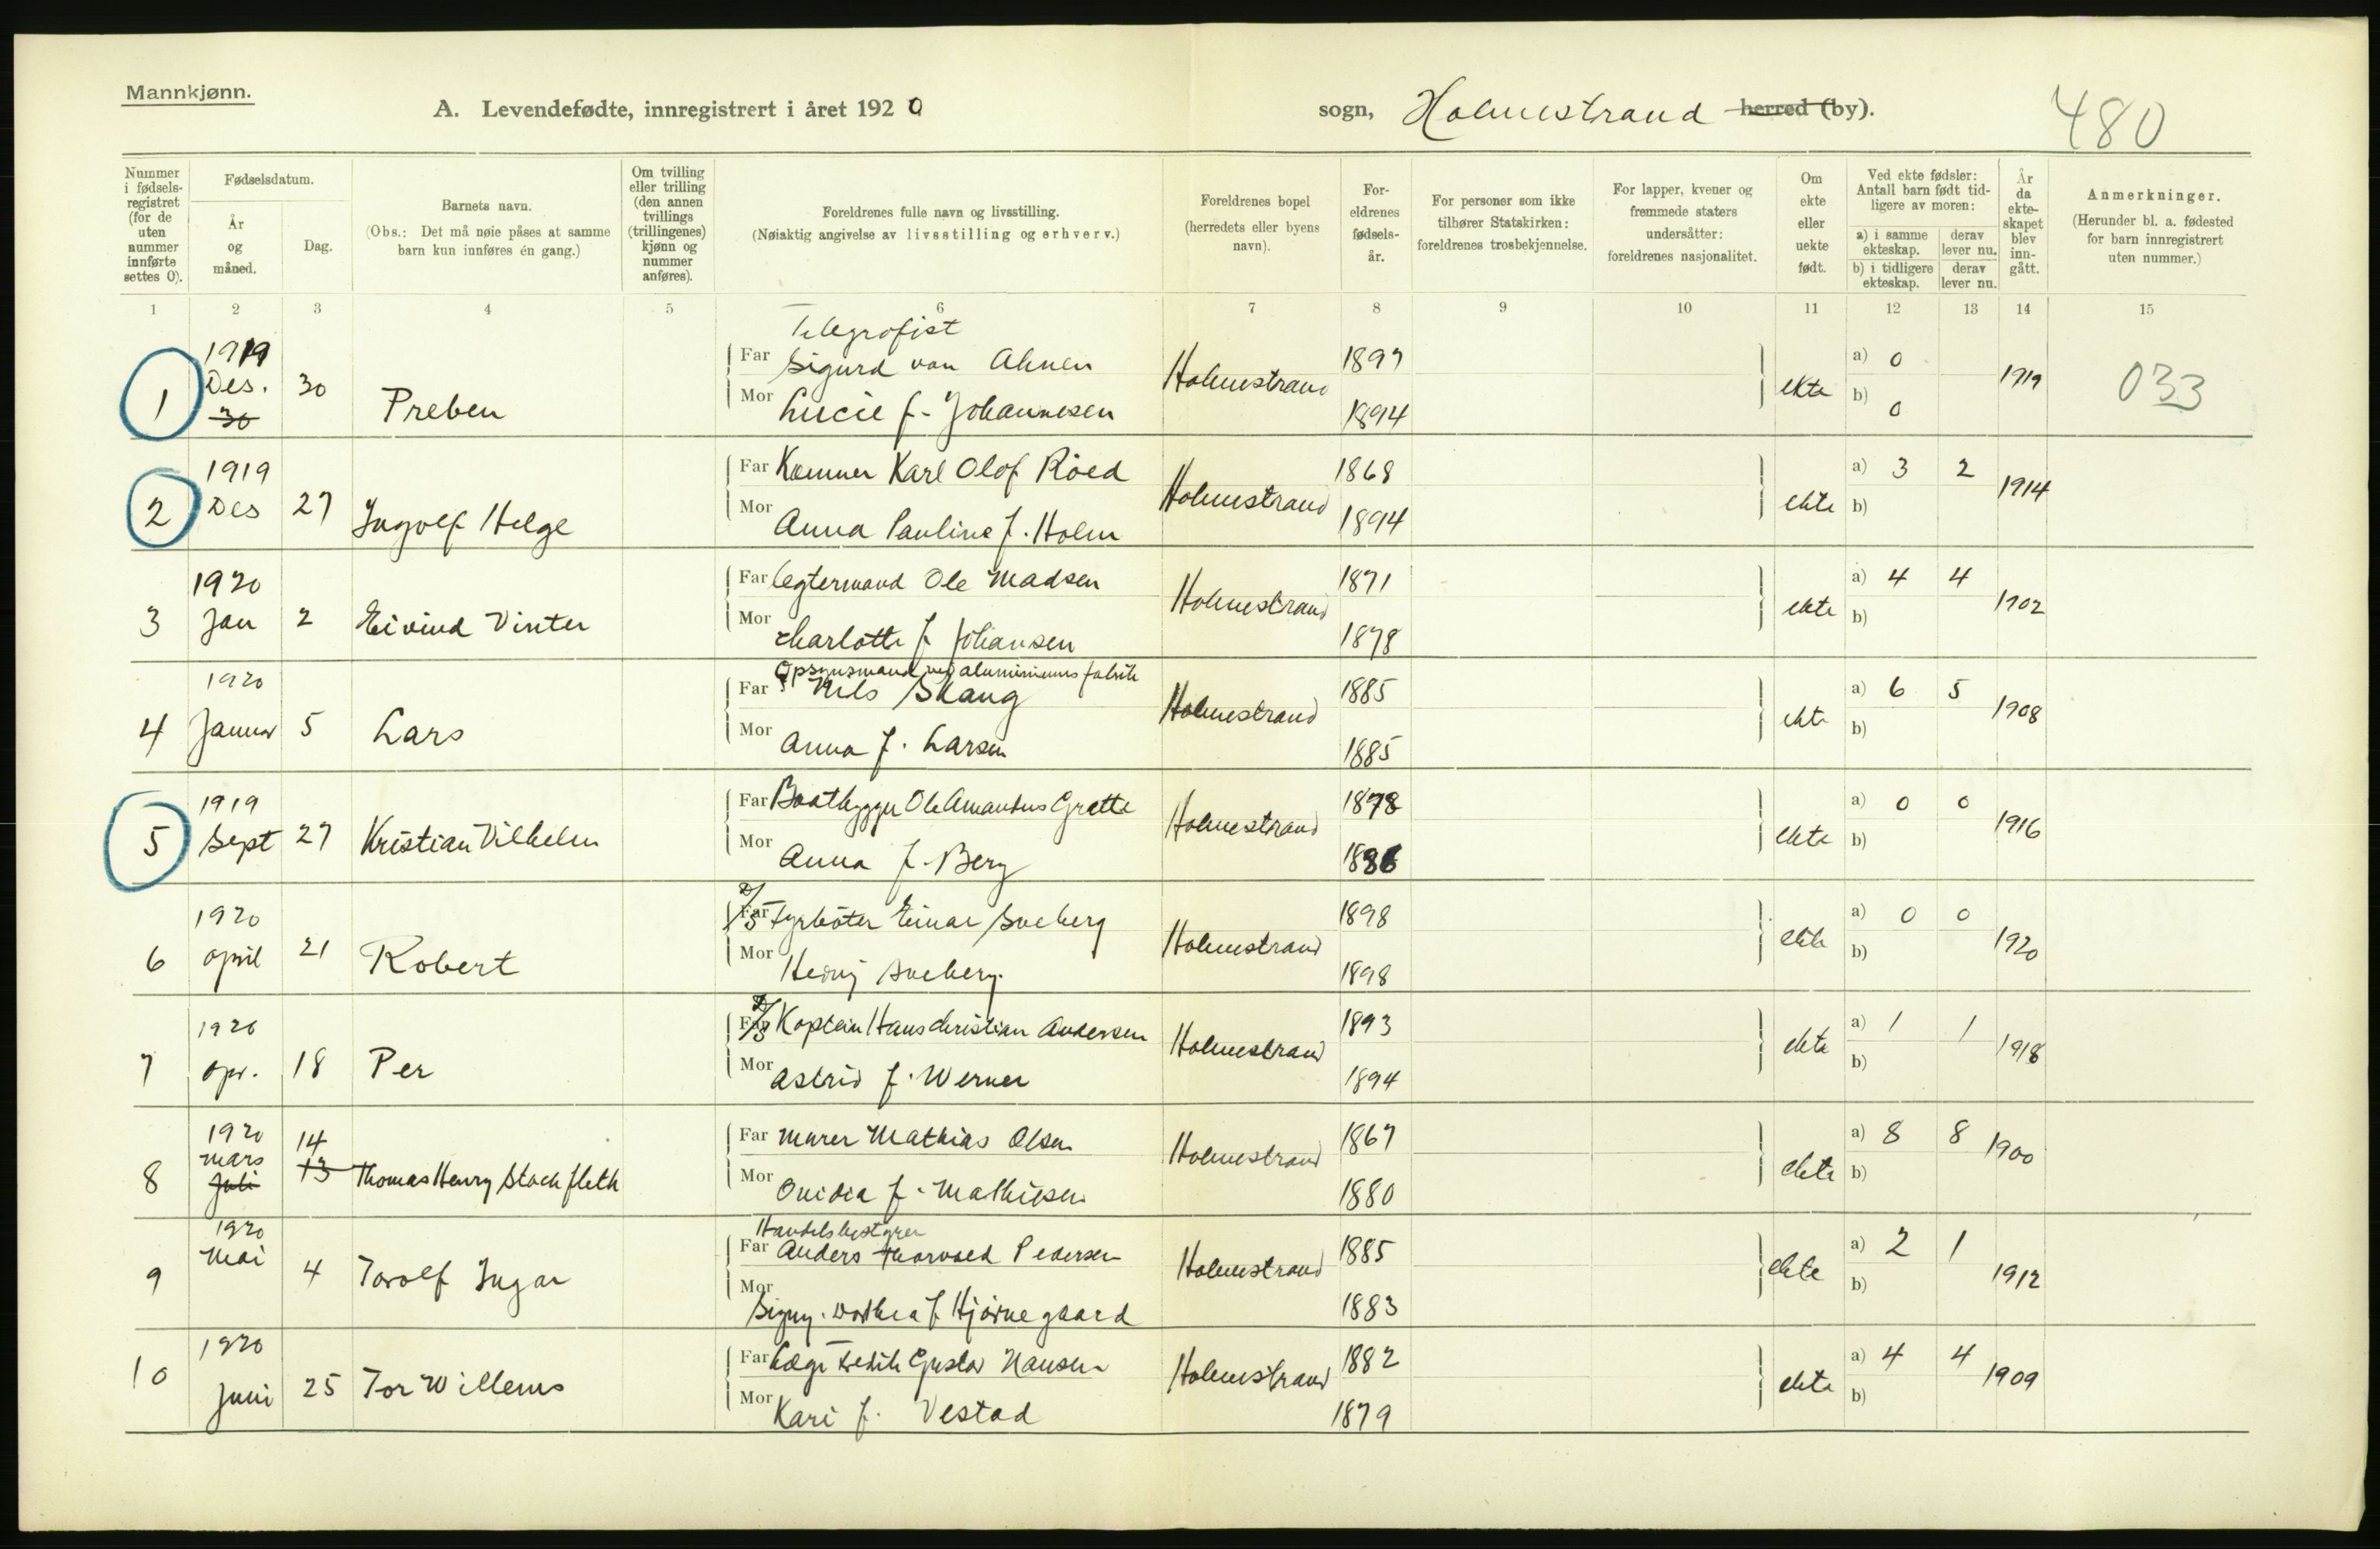 Mannkjønn.
A. Levendefødte, innregistrert i året 1920 sogn, Holmestrand herred (by). 480
Nummer i fødsels-registret (for de uten nummer innførte settes 0).
Fødselsdatum.
År og måned.
Dag.
Barnets navn.
(Obs.: Det må nøie påses at samme barn kun innføres én gang.)
Om tvilling eller trilling (den annen tvillings (trillingenes) kjønn og nummer anføres).
Foreldrenes fulle navn og livsstilling.
(Nøiaktig angivelse av livsstilling og erhverv.)
Foreldrenes bopel (herredets eller byens navn).
For-eldrenes fødsels-år.
For personer som ikke tilhører Statskirken: foreldrenes trosbekjennelse.
For lapper, kvener og fremmede staters undersåtter: foreldrenes nasjonalitet.
Om ekte eller uekte født.
Ved ekte fødsler: Antall barn født tid-ligere av moren:
a) i samme ekteskap. derav lever nu.
b) i tidligere ekteskap. derav lever nu.
År da ekte-skapet blev inn-gått.
Anmerkninger.
(Herunder bl. a. fødested for barn innregistrert uten nummer.)
1 2 3 4 5 6 7 8 9 10 11 12 13 14 15
Telegrafist
1 1919 Des. 30 30 Preben Far Sigurd von Ahnen Holmestrand 1897 ekte a) 0 1919 033
Mor Lucie f. Johannesen 1894 b) 0
2 1919 Des 27 Ingolf Helge Far Kemner Karl Olof Röed Holmestrand 1868 ekte a) 3 2 1914
Mor Anna Pauline f. Holm 1894 b)
3 1920 Jan 2 Eivind Vinter Far Ole Madsen Holmestrand 1871 ekte a) 4 4 1902
Mor Charlotte f Johansen 1878 b)
Opsynsmand ved aluminiums fabrik
4 1920 Januar 5 Lars Far Nils Skaug Holmestrand 1885 ekte a) 6 5 1908
Mor Anna f. Larsen 1885 b)
5 1919 Sept 27 Kristian Vilhelm Far Baatbygger Ole Amandus Grette Holmestrand 1878 ekte a) 0 0 1916
Mor Anna f. Berg 1886 b)
6 1920 april 21 Robert Far Fyrböter Einar Soeberg Holmestrand 1898 ekte a) 0 0 1920
Mor Soeberg. 1898 b)
7 1920 apr. 18 Per Far Kaptein Hans Christian Andersen Holmestrand 1893 ekte a) 1 1 1918
Mor Astrid f. Werner 1894 b)
8 1920 mars Juli 14 13 Thomas Henry Stockfleth Far Murer Mathias Olsen Holmestrand 1867 ekte a) 8 8 1900
Mor Ovidia f. Mathiesen 1880 b)
Handelsbestyrer
9 1920 Mai 4 Torolf Ingar Far Anders Thorvald Pedersen Holmestrand 1885 ekte a) 2 1 1912
Mor Signy. Dorthea f Hjörnegaard 1883 b)
10 1920 Juni 25 Tor Willems Far Læge Fredrik Gustav Hansen Holmestrand 1882 ekte a) 4 4 1909
Mor Kari f. Vestad 1879 b)